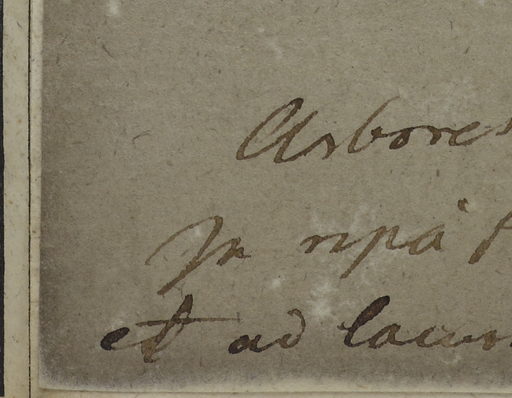 Arbores
In ripâ
et ad lacum